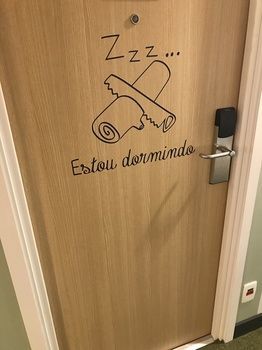 Zzz...
Estou dormindo